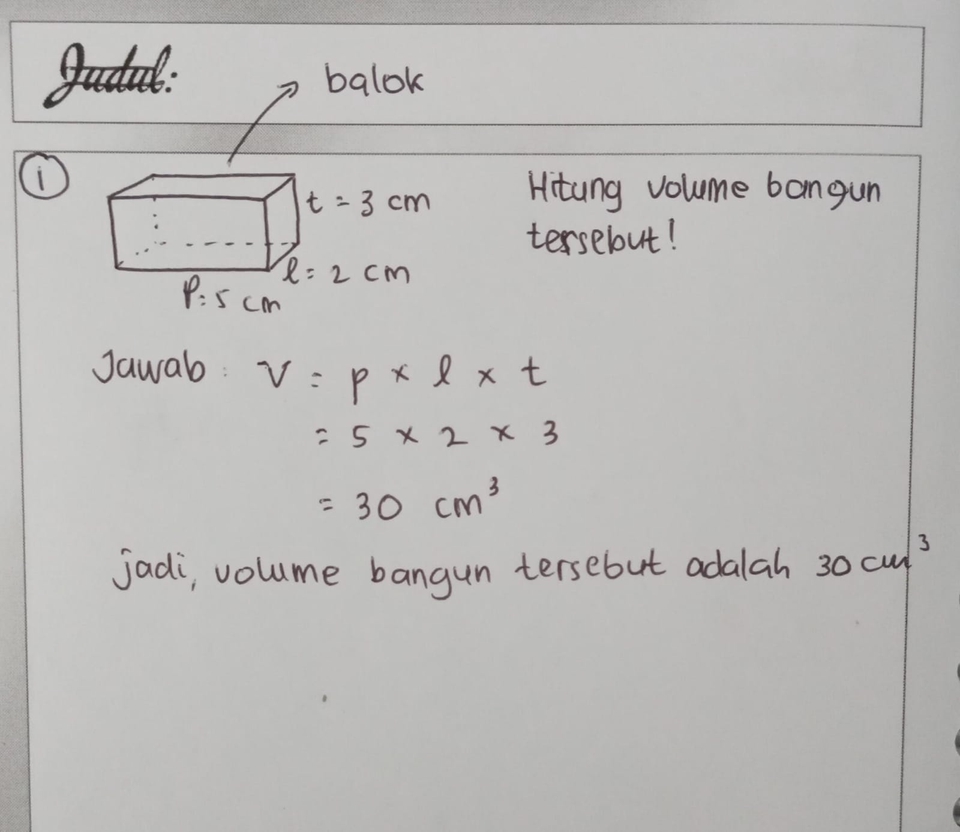 Judul:
balok
1
t = 3 cm
l = 2 cm
P = 5 cm
Hitung volume bangun
tersebut!
Jawab : V = p x l x t
= 5 x 2 x 3
= 30 cm³
jadi, volume bangun tersebut adalah 30 cm³